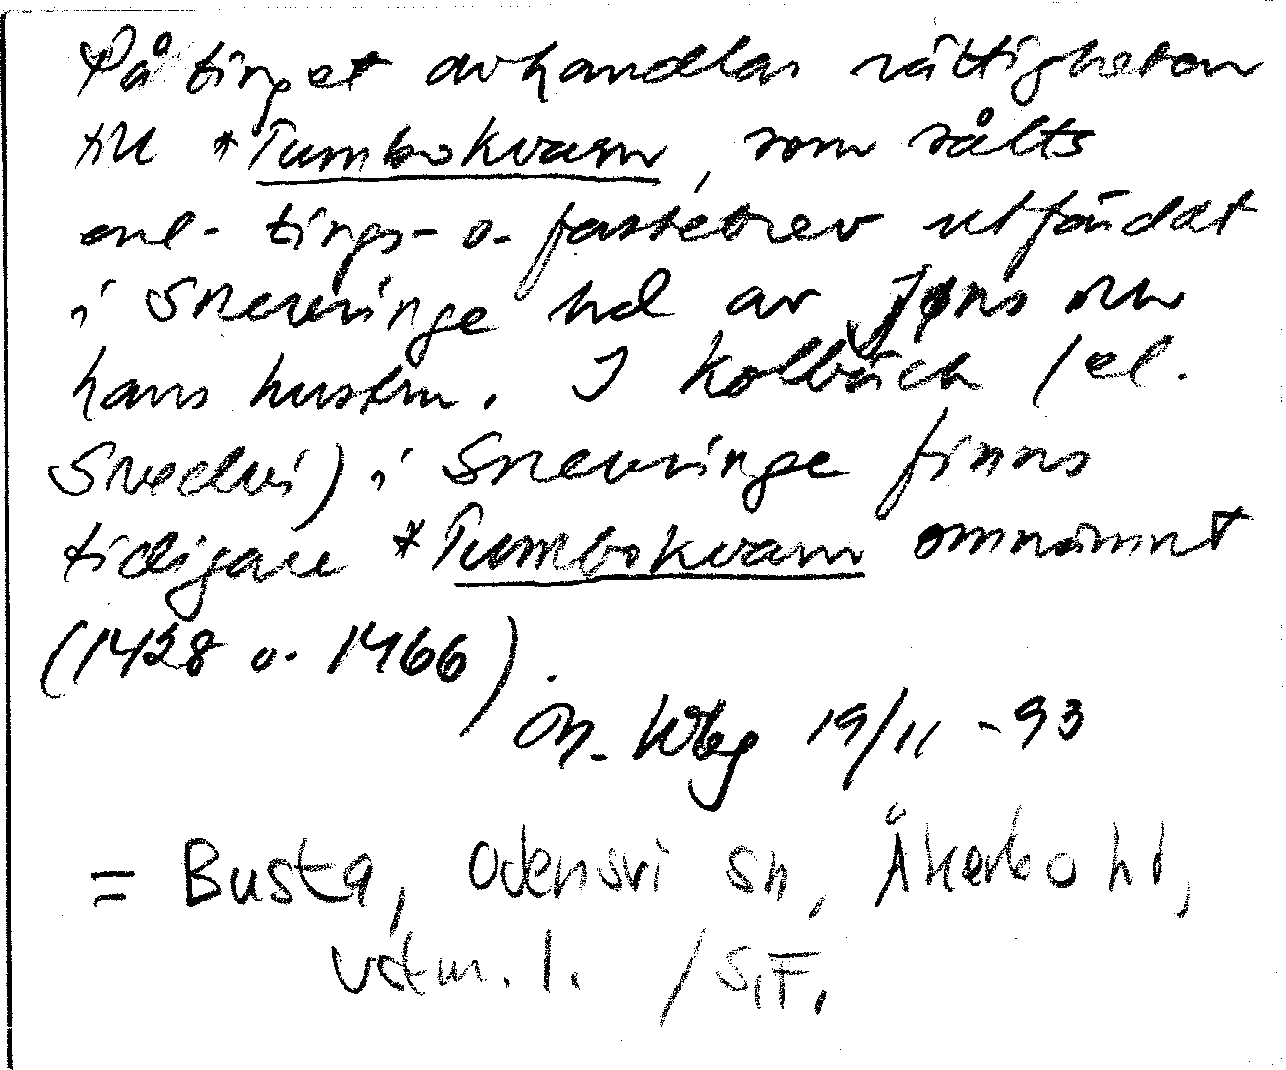 På tinget avhandlas rättigheten
till *Tumbokvarn, som sålts
enl. tings- o. fastebrev utfärdat
i Snevringe hd av Jöns och
hans hustru. I Kolbäck (el.
Svedvi) i Snevringe finns
tidigare *Tumbokvarn omnämnt
(1428 o. 1466).
M. Wbg 19/11 -93
= Busta, Odensvi sn, Åkerbo hd,
Vstm. l. /S.F.